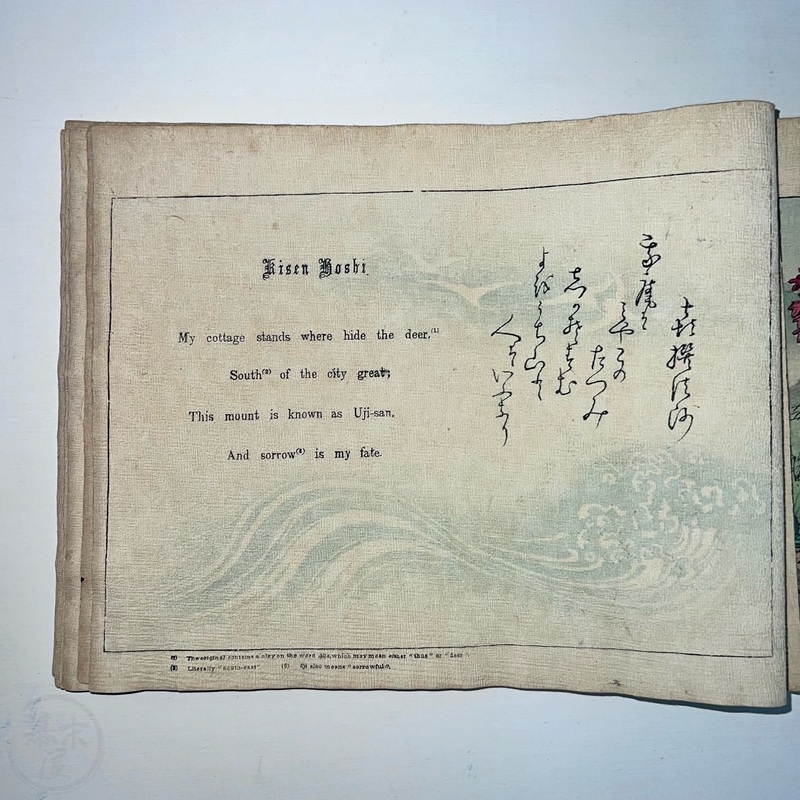 Kisen Hoshi.
My cottage stands where hide the deer,(1)
South(2) of the city great;
This mount is known as Uji-san,
And sorrow(3) is my fate.
喜撰法師
我庵は
みやこの
たつみ
志かそすむ
よをうち山と
人はいふなり
(1) The original contains a play on the word which may mean either "thus" or "deer".
(2) Literally "south-east" (3) Uji also means "sorrowful".